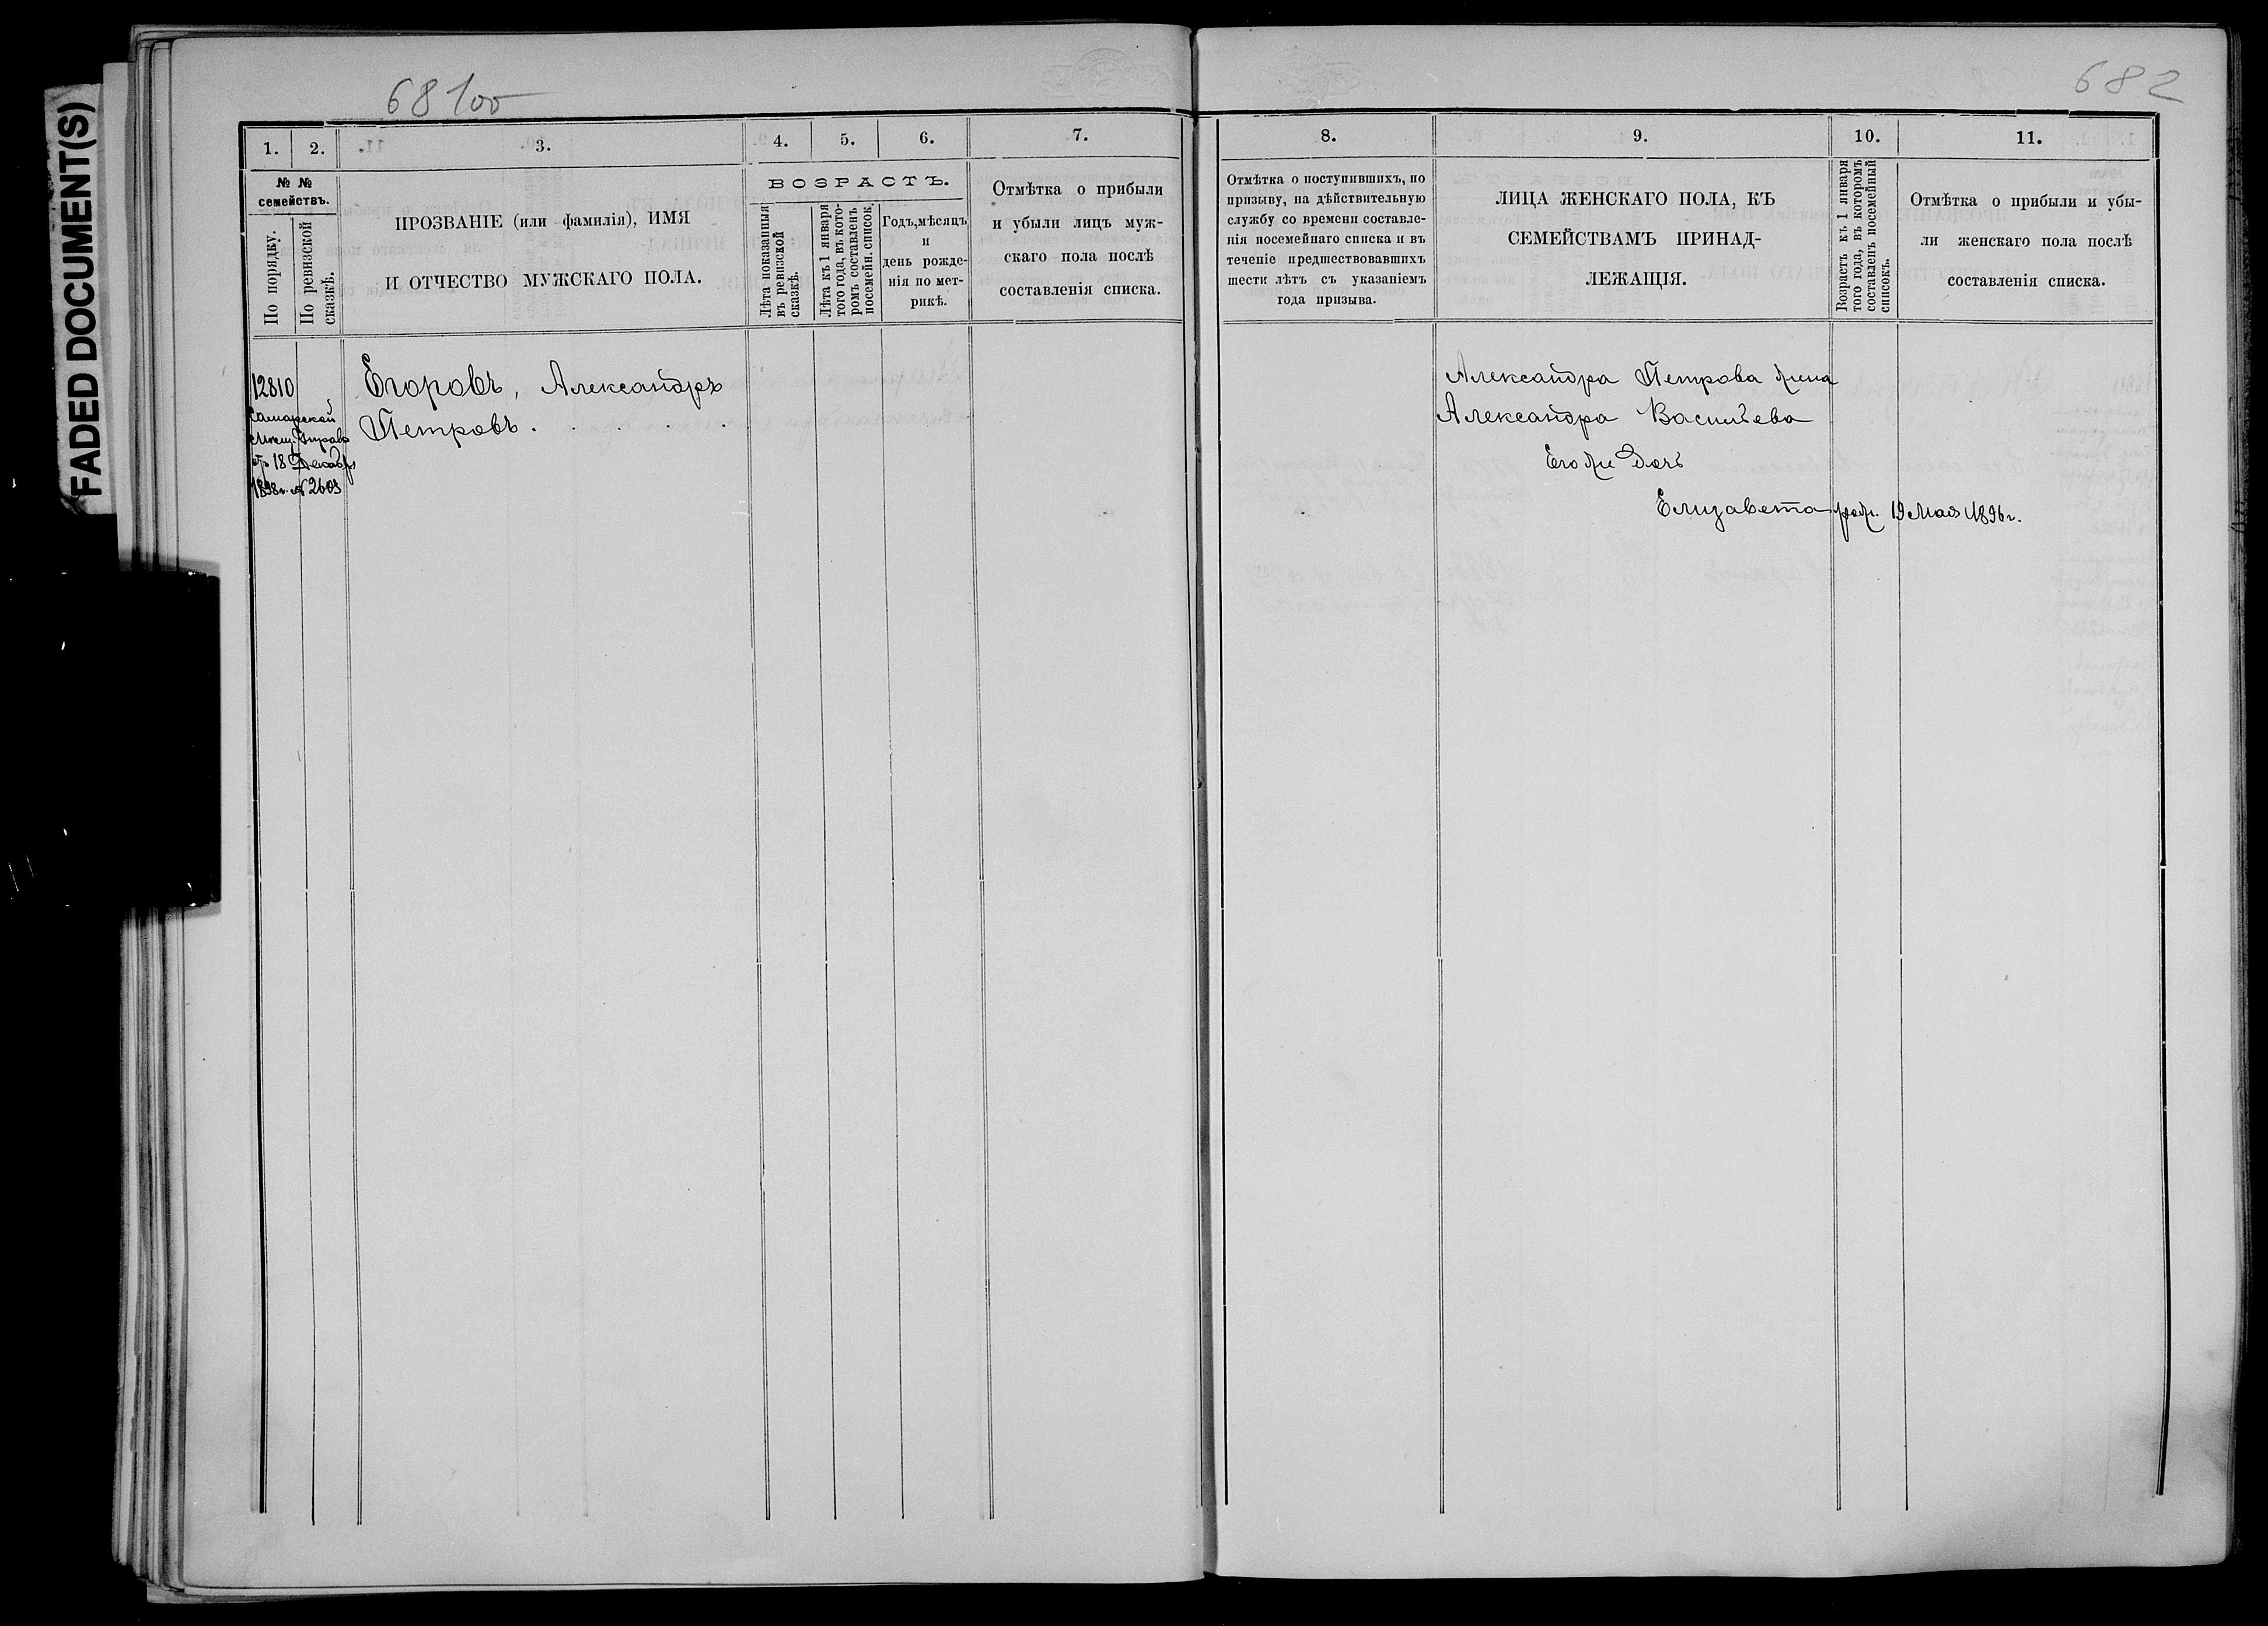 FADED DOCUMENT(S)
68100
682
1. 2. 3. 4. 5. 6. 7.
№ № семействъ.
По порядку.
По ревизской сказкѣ.
ПРОЗВАНІЕ (или фамилія), ИМЯ
И ОТЧЕСТВО МУЖСКАГО ПОЛА.
ВОЗРАСТЪ.
Лѣта показанныя
въ ревизской
сказкѣ.
Лѣта къ 1 января
того года, въ кото-
ромъ составленъ
посемейн. список.
Годъ, мѣсяцъ
и
день рожде-
нія по мет-
рикѣ.
Отмѣтка о прибыли
и убыли лицъ муж-
скаго пола послѣ
составленія списка.
8. 9. 10. 11.
Отмѣтка о поступившихъ, по
призыву, на дѣйствительную
службу со времени составле-
нія посемейнаго списка и въ
теченіе предшествовавшихъ
шести лѣтъ съ указаніемъ
года призыва.
ЛИЦА ЖЕНСКАГО ПОЛА, КЪ
СЕМЕЙСТВАМЪ ПРИНАД-
ЛЕЖАЩІЯ.
Возрастъ къ 1 января
того года, въ которомъ
составленъ посемейный
списокъ.
Отмѣтка о прибыли и убы-
ли женскаго пола послѣ
составленія списка.
12810
Самарской
Мѣщ. Управы
отъ 18 Декабря
1898 г. № 2603
Егоровъ, Александръ
Петровъ . . . .
Александра Петрова жена
Александра Васильева
Его же дочь
Елизавета род. 19 Мая 1896 г.